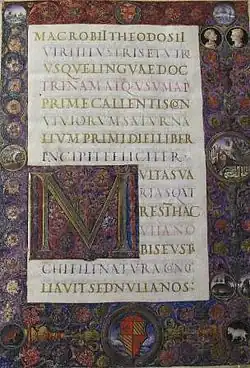 MACROBII THEODOSII
VIRI ILLVSTRIS ET VTRI
VSQVE LINGVAE DOC
TRINAM ATQ VSVM AP
PRIME CALLENTIS CON
VIVIORVM SATVRNA
LIVM PRIMI DIEI LIBER
INCIPIT FELICITER
MVLTAS VA
RIASQ VT
RES IN HAC
VITA NO
BIS EVST
CHI FILI NATVRA CONC
LIAVIT SED NVLLA NOS